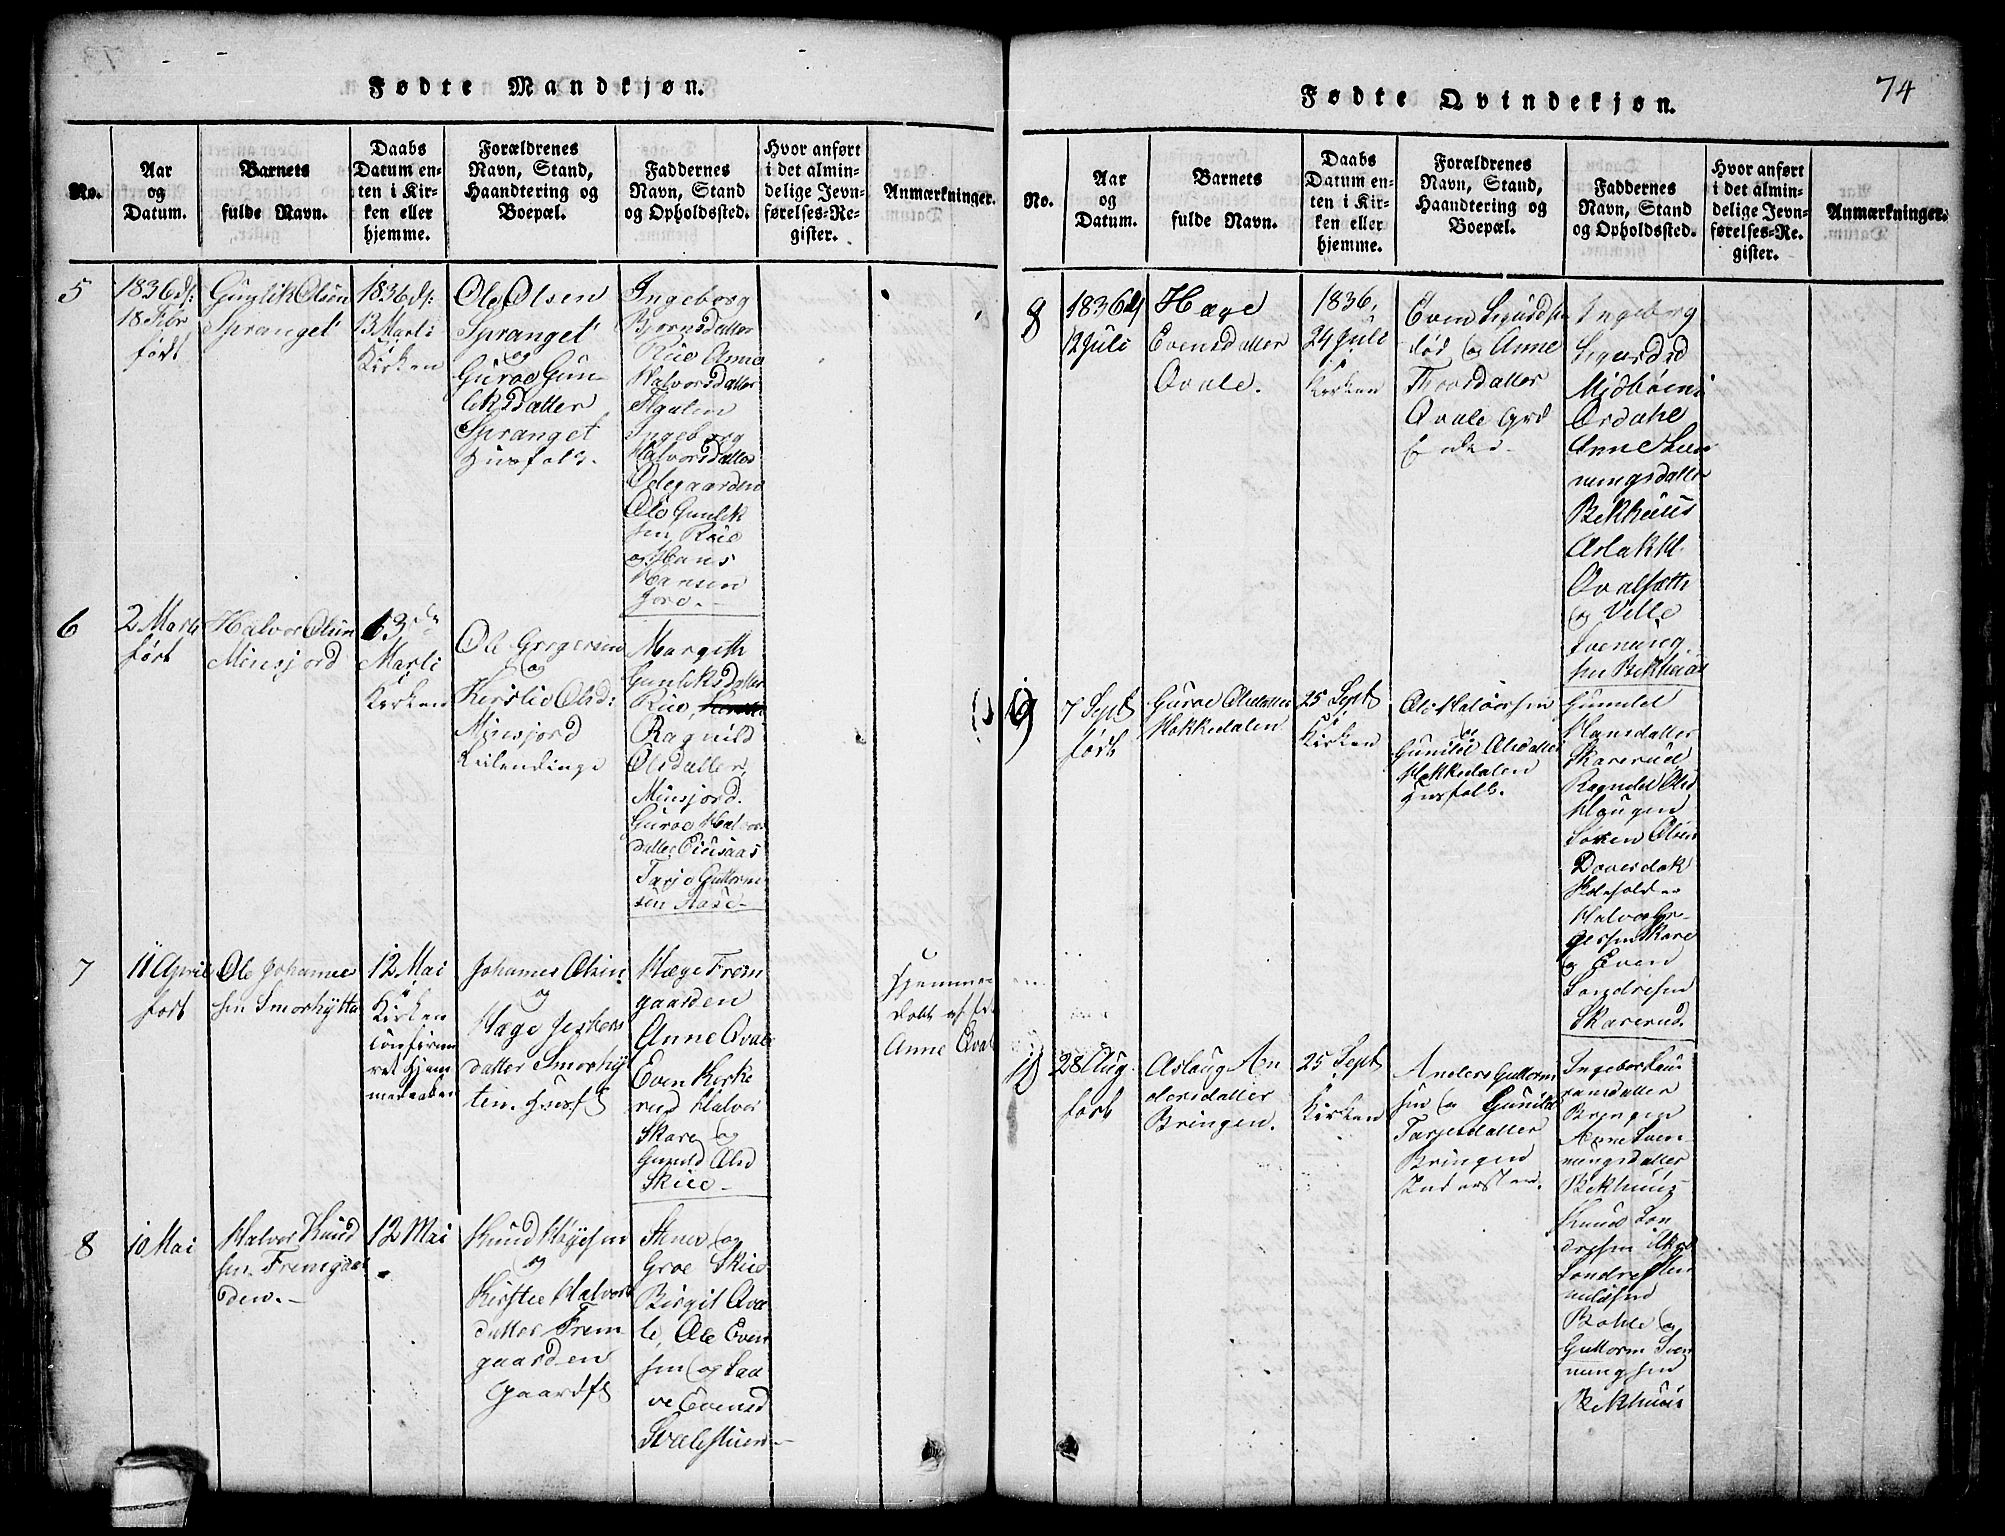 Fødte Mandkjøn.
No.
Aar
og
Datum.
Barnets
fulde Navn.
Daabs
Datum en-
ten i Kir-
ken eller
hjemme.
Forældrenes
Navn, Stand,
Haandtering og
Boepæl.
Faddernes
Navn, Stand
og Opholdssted.
Hvor anført
i det almin-
delige Jevn-
førelses-Re-
gister.
Anmærkninger.
5
1836 d:
18 Febr
født
Gunlik Olsen
Spranget
1836 d:
13 Marti
i
Kirken
Ole Olsen
Spranget
og
Guroe Gun-
liksdatter
Spranget
Husfolk.
Ingeborg
Bjørnsdatter
Rue Anne
Halvorsdatter
Ingeborg
Halvorsdatter
Ødegaarden
Ole Gunlik
sen Rue
og Hans
Hansen
Jore.
6
2 Marti
født
Halvor Olsen
Minsjord
13de
Marti
Kirken
Ole Gregersen
og
Kirstie Olsd:
Minsjord
Margith
Gunliksdatter
Rue,
Ragnild
Olsdatter
Minsjord.
Guroe Halvors
datter
Tarje Guttorm
sen Aase
7
11 April
født
Ole Johanne
sen Smorhytta
12 Mai
i
Kirken
confirme
ret Hjem
medaaben
Johannes Olsen
og
Hæge
datter Smorhyt
ten. Husf
Hæge Frem
gaarden
Anne Qvale
Even Kirke
rud Halvor
Skare og
Gunild Olsd
Skiee
Hjemme
døbt af
Anne Qval
8
10 Mai
Halvor Knud
sen Fremgaar
den.
12 Mai
Knud
og
Kirstie Halvors
datter Frem
gaarden
Gaardf
og
Groe Skiee
Birgit Qva
le, Ole Even
sen og Saa
ve Evensd
Fødte Qvindekjøn.
74
No.
Aar
og
Datum.
Barnets
fulde Navn.
Daabs
Datum en-
ten i Kir-
ken eller
hjemme.
Forældrenes
Navn, Stand,
Haandtering og
Boepæl.
Faddernes
Navn, Stand
og Opholdssted.
Hvor anført
i det almin-
delige Jevn-
førelses-Re-
gister.
Anmærkninger.
8
1836 d
12 Juli
Hæge
Evensdatter
Qvale.
1836,
24 Juli
i
Kirken
Even Sigurdsen
død og Anne
Thorsdatter
Qvale
Ingeborg
Sigurdsd
Midbøen i
Ørdahl
Anne Sven
nungsdatter
Bekhuus
Aslak H.
og Velle
Svenung
sen Bekhuus
9
7 Sept
født
Guroe Olsdatter
Hokkedalen
25 Sept
i
Kirken
Ole Halvorsen
og
Gunild Olsdatter
Hokkedalen
Husfolk.
Gunild
Hansdatter
Skarerud
Ragnild Olsd
Haugen
Søren Olsen
Halvor Gre-
gersen Skare
og Even
Sondresen
Skarerud.
10
28 Aug.
født
Aslaug An
dersdatter
Bringen.
25 Sept
i
Kirken
Anders Guttorm
sen og Gunild
Tarjesdatter
Bringen
Inderst
Ingebor
datter
Bringen
Anne Sven
nungsdatter
Bekhuus
Knud Son
dresen
Sondre
Bohle og
Guttorm Sven
nungsen
Bekhuus